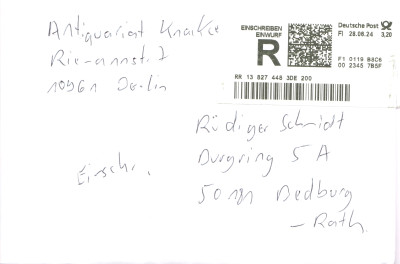 Antiquariat Knaake
Riemannstr. 7
10961 Berlin
EINSCHREIBEN
EINWURF
R
Deutsche Post
FI 28.08.24 3,20
F1 0119 B8C6
00 2345 7B5F
RR 13 827 445 3DE 200
Rüdiger Schmidt
Burgring 5 A
50181 Bedburg
- Rath
Einschr.